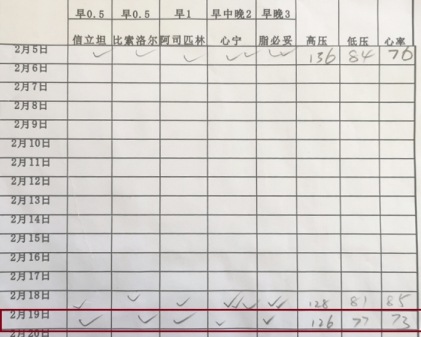 早0.5 早0.5 早1 早中晚2 早晚3
信立坦 比索洛尔 阿司匹林 心宁 脂必妥 高压 低压 心率
2月5日 ✓ ✓ ✓ ✓✓ ✓✓ 136 84 76
2月6日
2月7日
2月8日
2月9日
2月10日
2月11日
2月12日
2月13日
2月14日
2月15日
2月16日
2月17日
2月18日 ✓ ✓ ✓ ✓✓✓ ✓✓ 128 81 85
2月19日 ✓ ✓ ✓ ✓ ✓ 126 77 73
2月20日